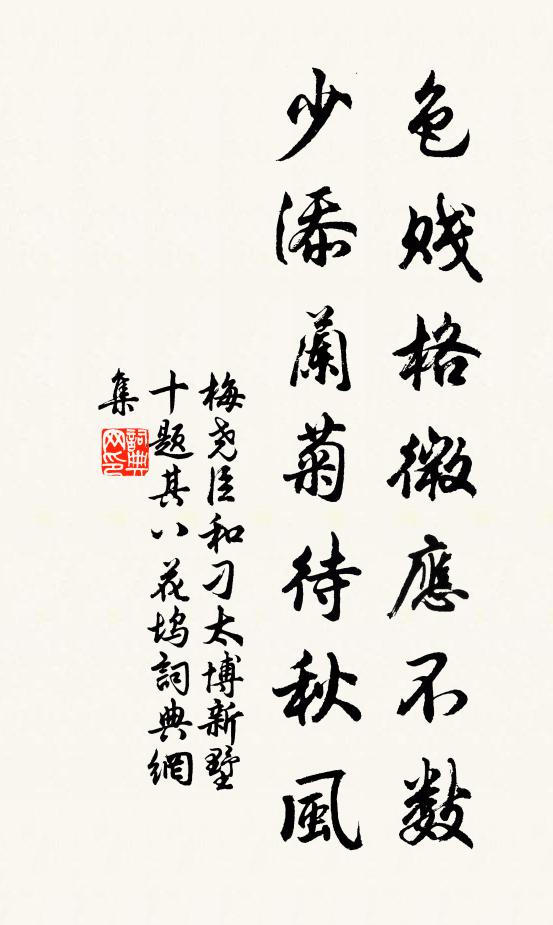 色賤格微應不數
少添蘭菊待秋風
梅堯臣和刁太博新墅
十題其八花塢詞典網
集
詞典
网印